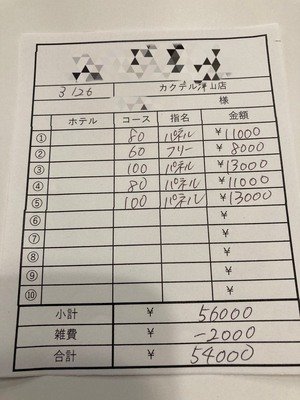 3/26 カクテル津山店
様
ホテル コース 指名 金額
① 80 パネル ¥11000
② 60 フリー ¥8000
③ 100 パネル ¥13000
④ 80 パネル ¥11000
⑤ 100 パネル ¥13000
⑥ ¥
⑦ ¥
⑧ ¥
⑨ ¥
⑩ ¥
小計 ¥ 56000
雑費 ¥ -2000
合計 ¥ 54000